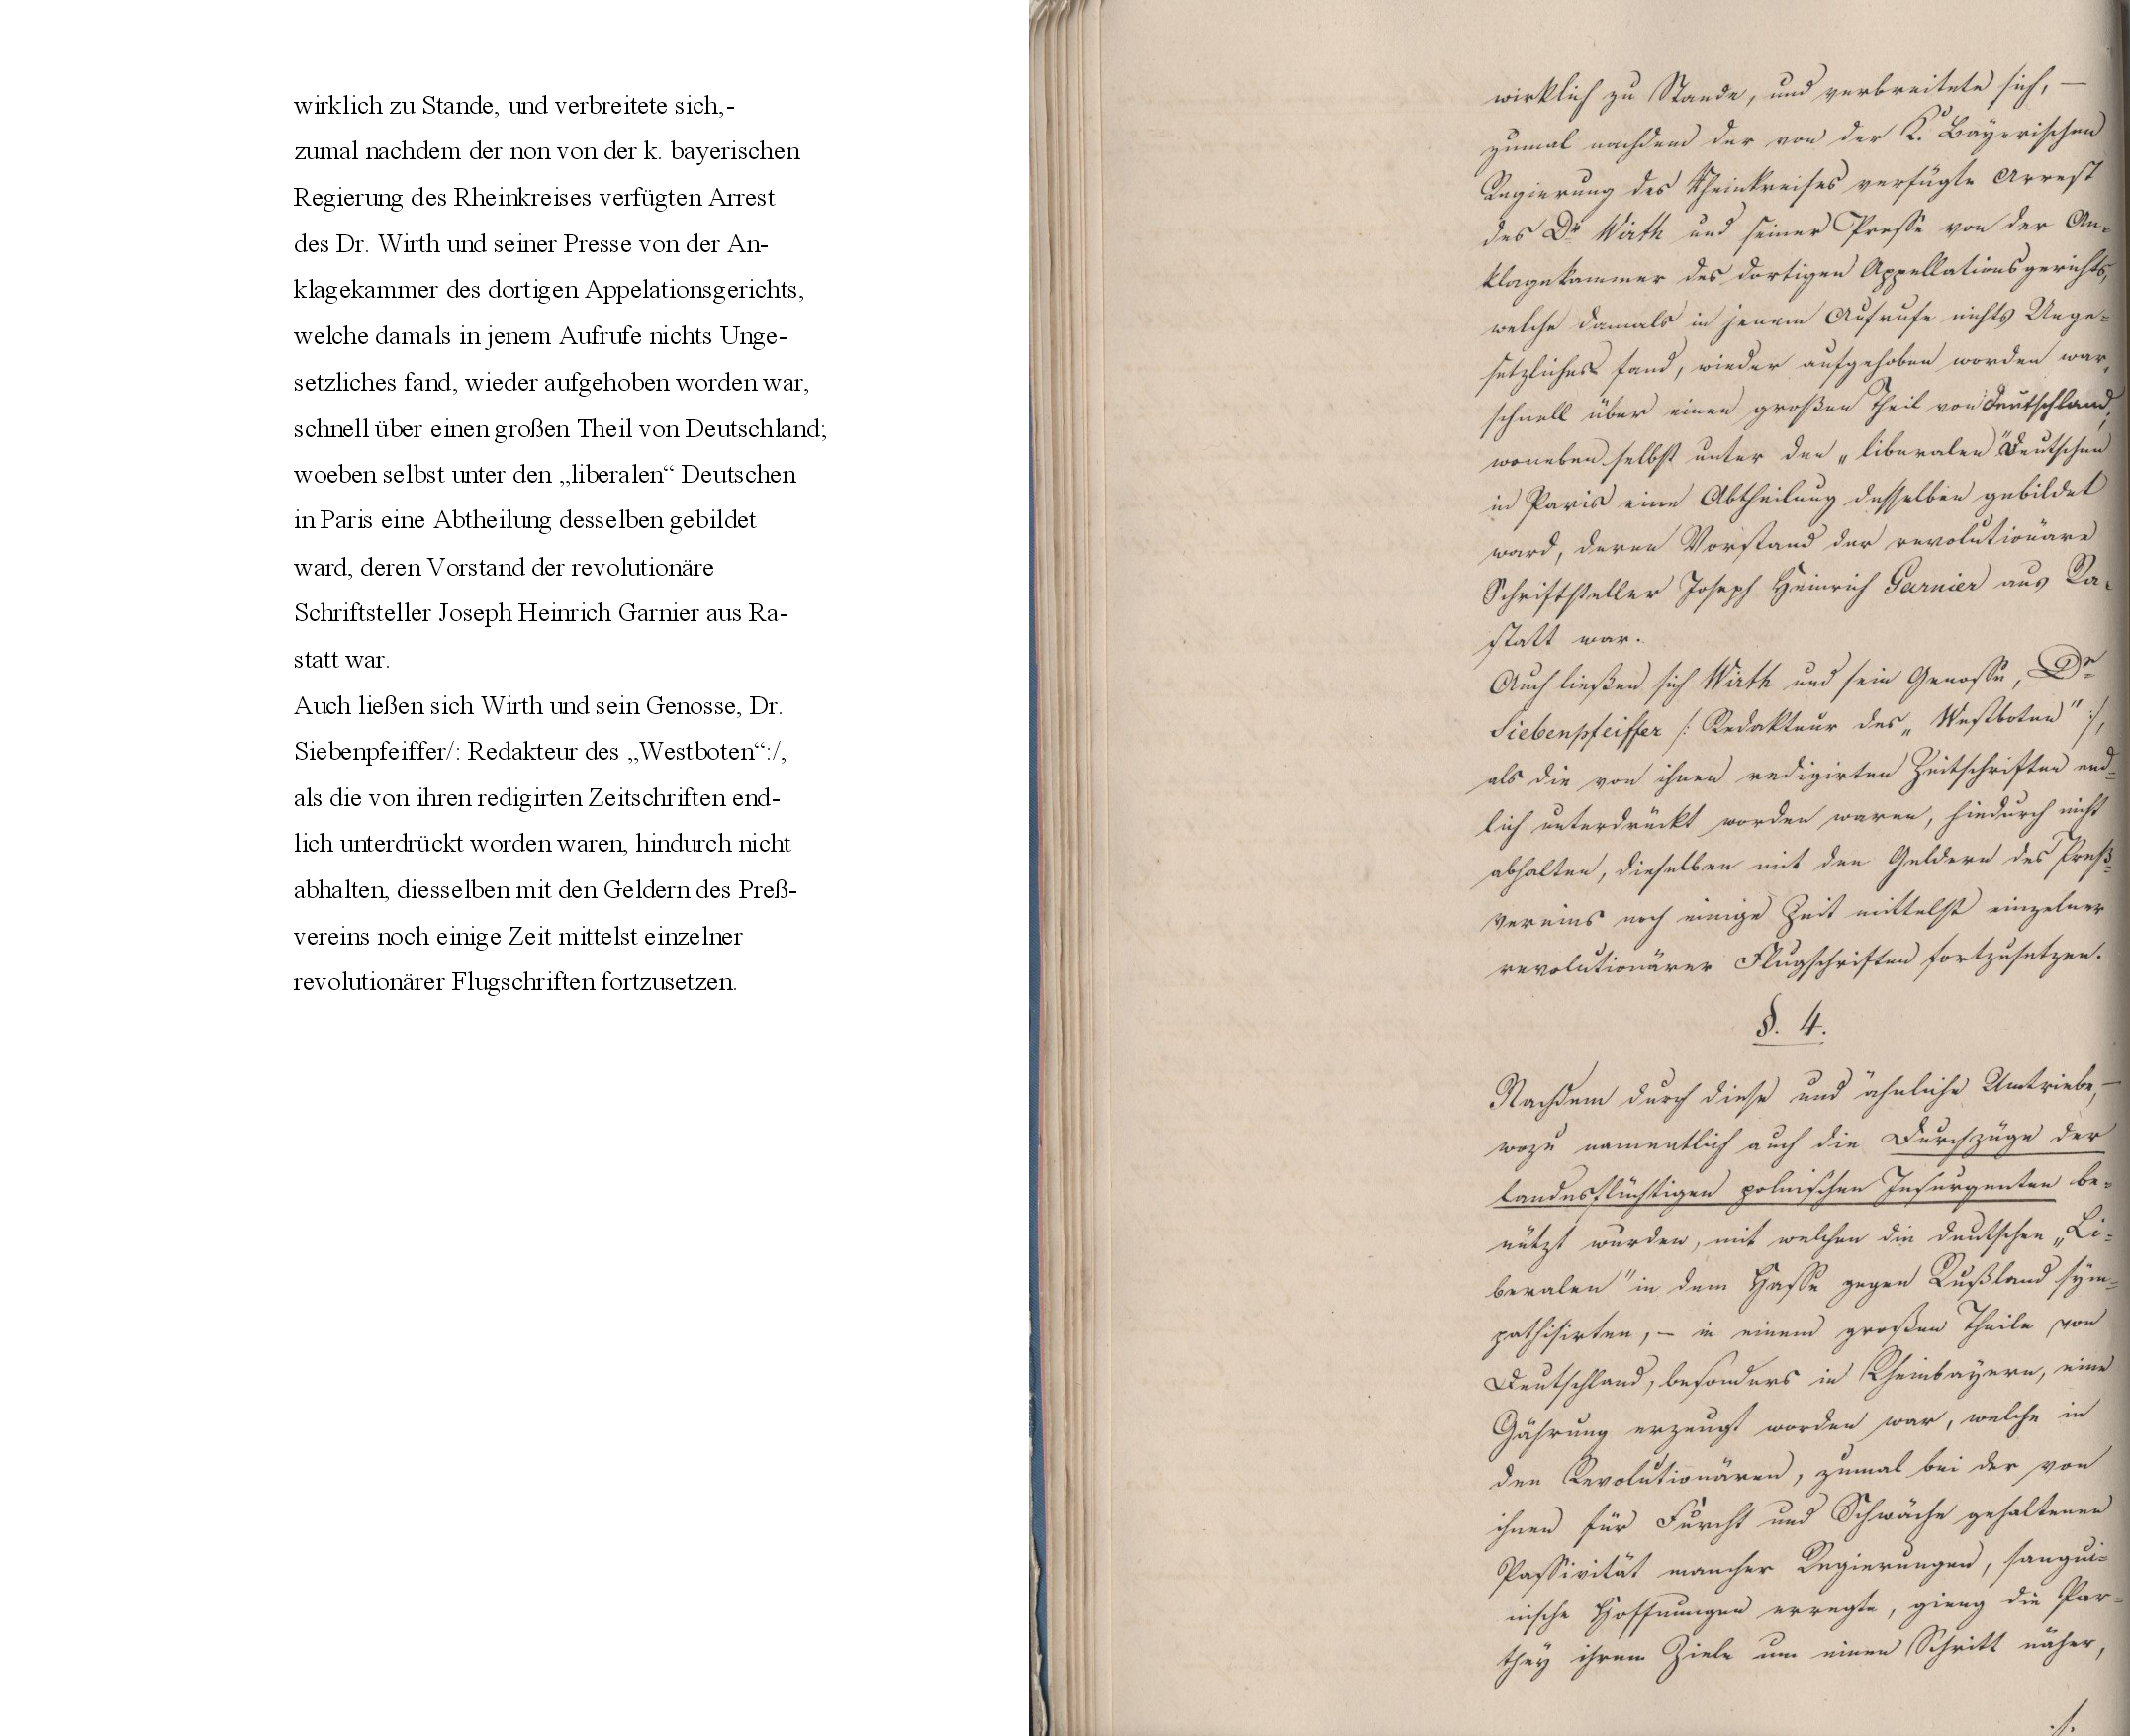 wirklich zu Stande, und verbreitete sich,-
zumal nachdem der non von der k. bayerischen
Regierung des Rheinkreises verfügten Arrest
des Dr. Wirth und seiner Presse von der An-
klagekammer des dortigen Appelationsgerichts,
welche damals in jenem Aufrufe nichts Unge-
setzliches fand, wieder aufgehoben worden war,
schnell über einen großen Theil von Deutschland;
woeben selbst unter den „liberalen“ Deutschen
in Paris eine Abtheilung desselben gebildet
ward, deren Vorstand der revolutionäre
Schriftsteller Joseph Heinrich Garnier aus Ra-
statt war.
Auch ließen sich Wirth und sein Genosse, Dr.
Siebenpfeiffer/: Redakteur des „Westboten“:/,
als die von ihren redigirten Zeitschriften end-
lich unterdrückt worden waren, hindurch nicht
abhalten, diesselben mit den Geldern des Preß-
vereins noch einige Zeit mittelst einzelner
revolutionärer Flugschriften fortzusetzen.
wirklich zu Stande, und verbreitete sich, —
zumal nachdem der von der K. Bayerischen
Regierung des Rheinkreises verfügte Arrest
des Dr Wirth und seiner Presse von der An-
klagekammer des dortigen Appellationsgerichts,
welche damals in jenem Aufrufe nichts Unge-
setzliches fand, wieder aufgehoben worden war,
schnell über einen großen Theil von Deutschland;
woneben selbst unter den „liberalen" Deutschen
in Paris eine Abtheilung desselben gebildet
ward, deren Vorstand der revolutionäre
Schriftsteller Joseph Heinrich Garnier aus Ra-
statt war.
Auch ließen sich Wirth und sein Genosse, Dr
Siebenpfeiffer /: Redakteur des „Westboten" :/,
als die von ihnen redigirten Zeitschriften end-
lich unterdrückt worden waren, hiedurch nicht
abhalten, dieselben mit den Geldern des Preß-
vereins noch einige Zeit mittelst einzelner
revolutionärer Flugschriften fortzusetzen.
§. 4.
Nachdem durch diese und ähnliche Umtriebe, —
wozu namentlich auch die Durchzüge der
landesflüchtigen polnischen Insurgenten be-
nützt wurden, mit welchen die deutschen „Li-
beralen" in dem Hasse gegen Rußland sym-
pathisirten, — in einem großen Theile von
Deutschland, besonders in Rheinbayern, eine
Gährung erzeugt worden war, welche in
den Revolutionären, zumal bei der von
ihnen für Furcht und Schwäche gehaltenen
Passivität mancher Regierungen, sangui-
nische Hoffnungen erregte, gieng die Par-
they ihrem Ziele um einen Schritt näher,